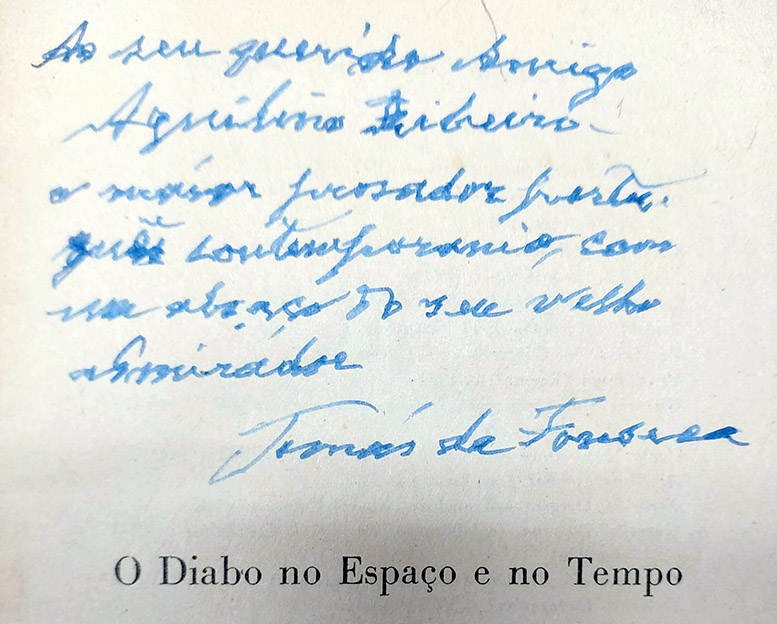 Ao seu querido Amigo
Aquilino Ribeiro
o maior prosador portu-
guês contemporanio, com
um abraço do seu velho
admirador
Tomás da Fonseca
O Diabo no Espaço e no Tempo